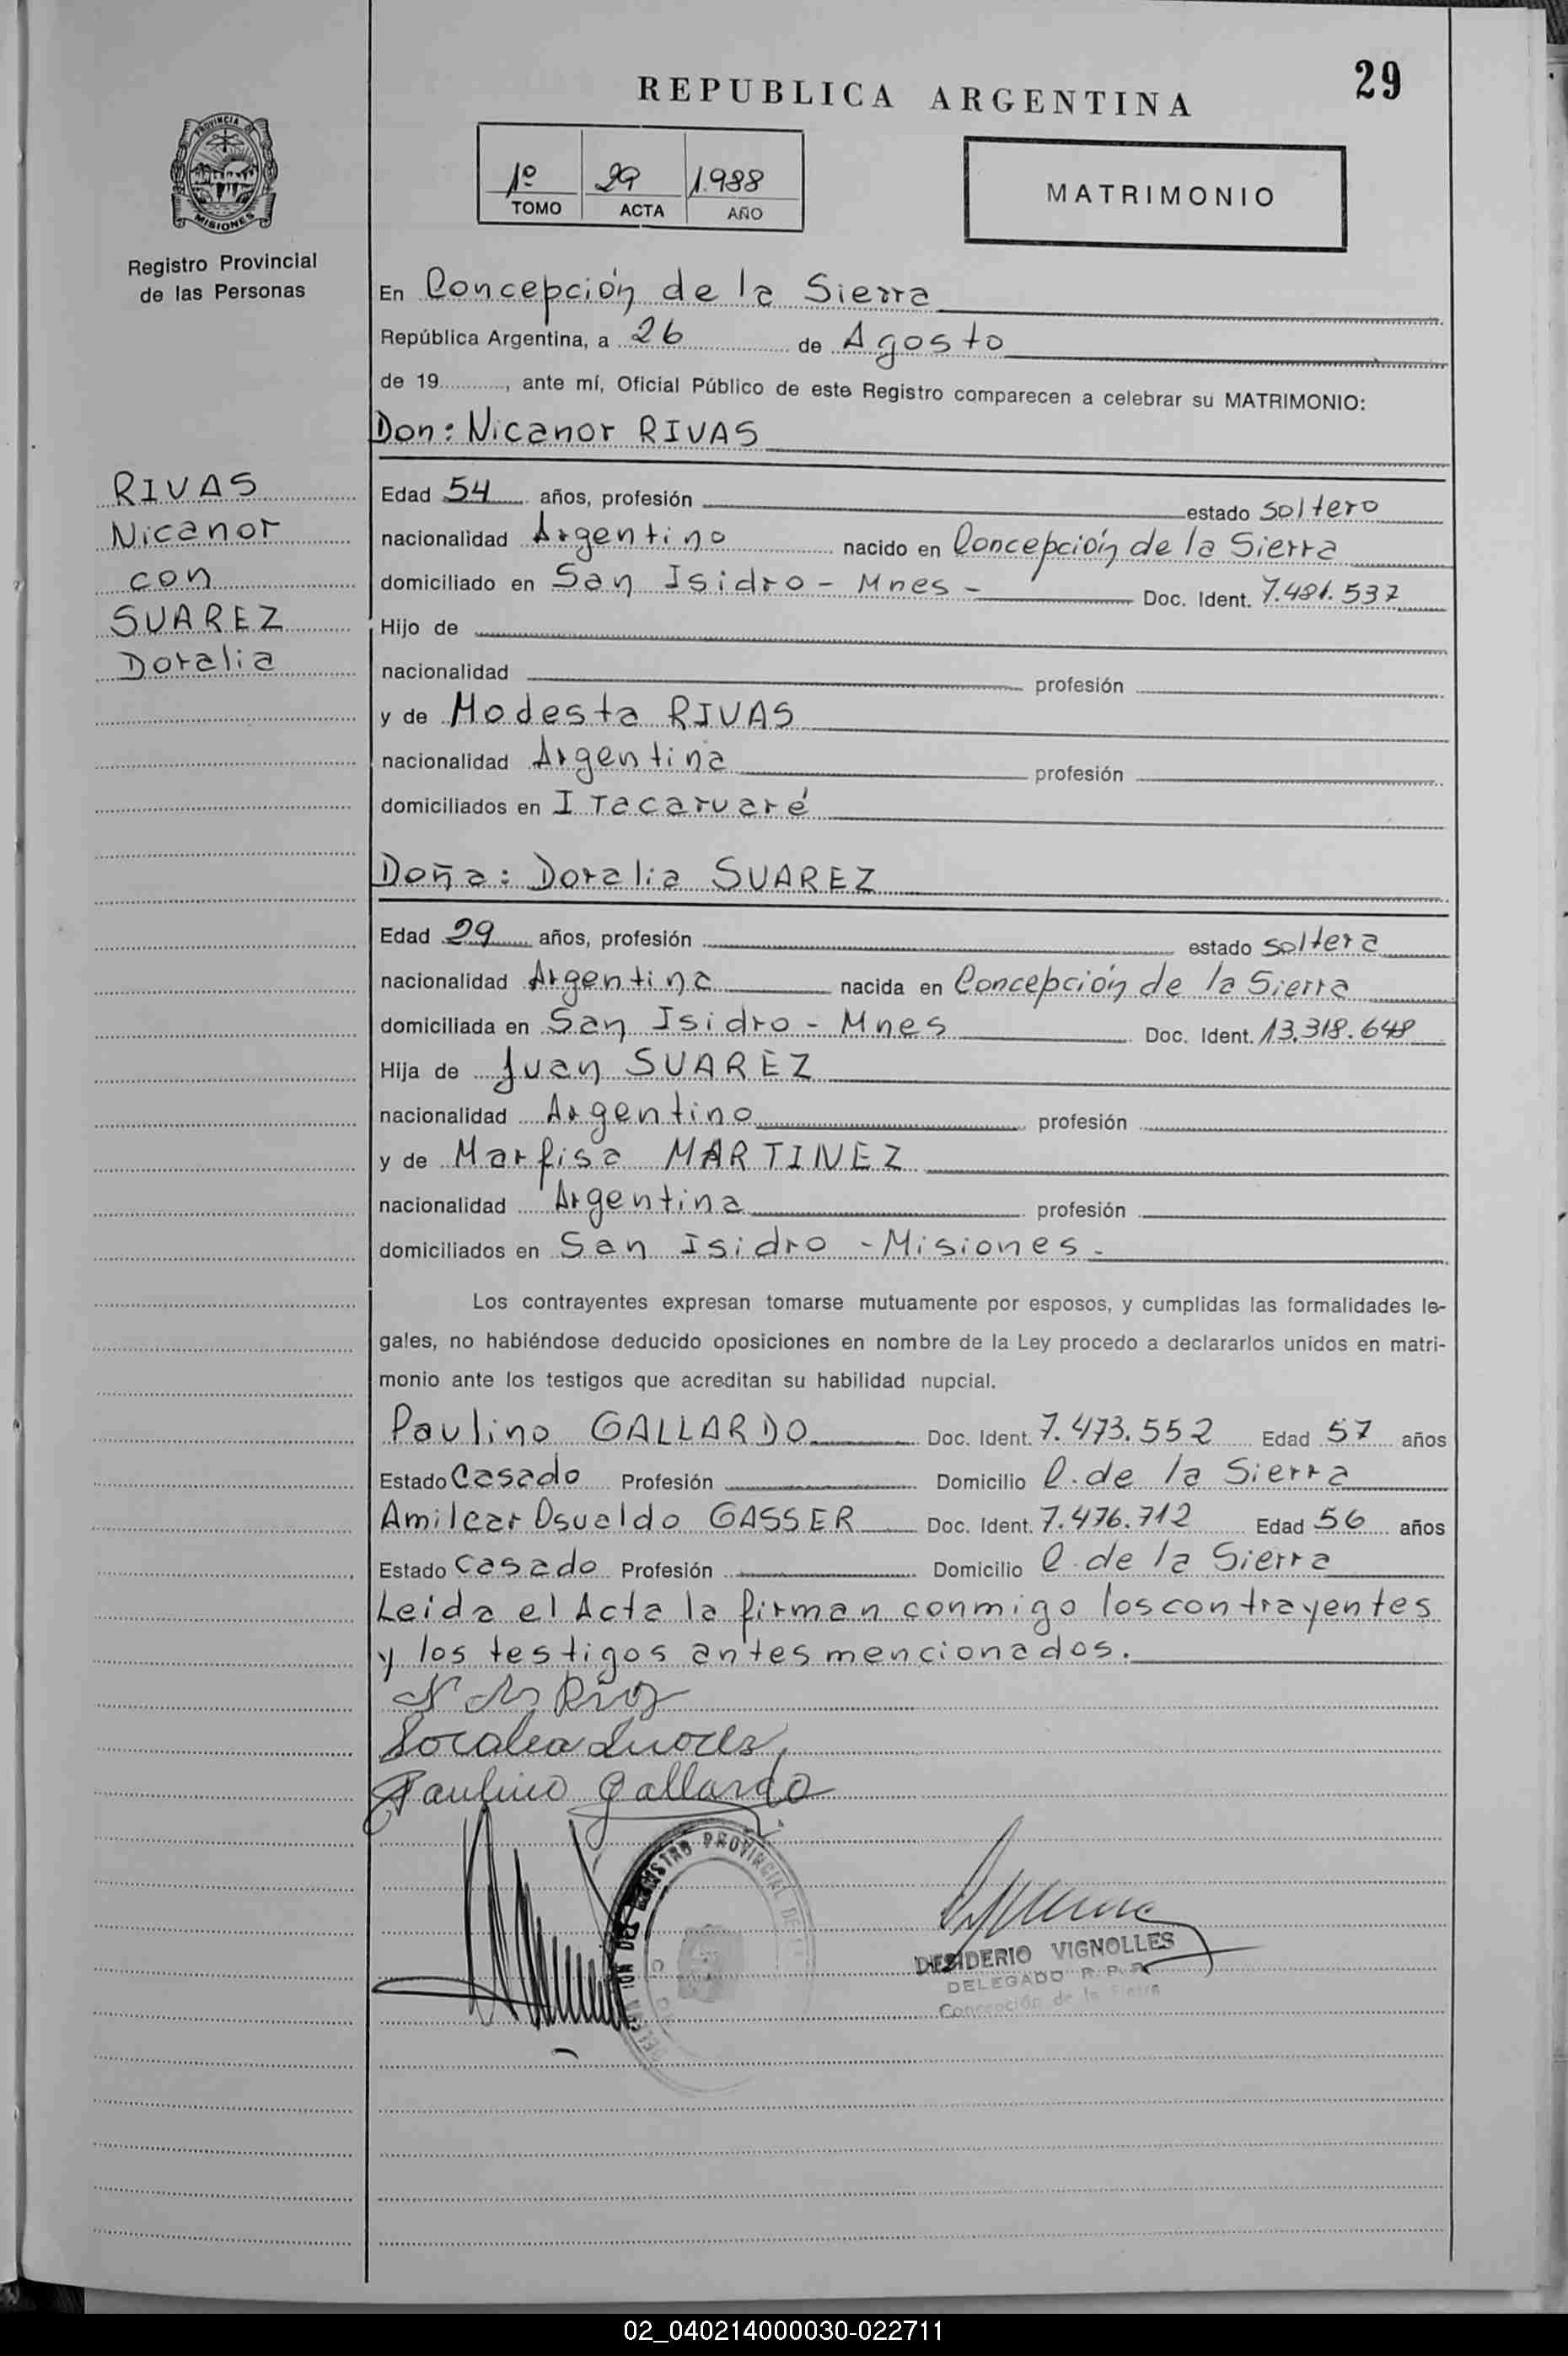 29
REPUBLICA ARGENTINA
PROVINCIA DE
MISIONES
Registro Provincial
de las Personas
1º 29 1.988
TOMO ACTA AÑO
MATRIMONIO
En Concepción de la Sierra
República Argentina, a 26 de Agosto
de 19..........., ante mí, Oficial Público de este Registro comparecen a celebrar su MATRIMONIO:
Don: Nicanor RIVAS
RIVAS
Nicanor
con
SUAREZ
Doralia
Edad 54 años, profesión estado soltero
nacionalidad Argentino nacido en Concepción de la Sierra
domiciliado en San Isidro - Mnes - Doc. Ident. 7.481.537
Hijo de
nacionalidad profesión
y de Modesta RIVAS
nacionalidad Argentina profesión
domiciliados en Itacaruaré
Doña: Doralia SUAREZ
Edad 29 años, profesión estado soltera
nacionalidad Argentina nacida en Concepción de la Sierra
domiciliada en San Isidro - Mnes Doc. Ident. 13.318.648
Hija de Juan SUAREZ
nacionalidad Argentino profesión
y de Marfisa MARTINEZ
nacionalidad Argentina profesión
domiciliados en San Isidro - Misiones.
Los contrayentes expresan tomarse mutuamente por esposos, y cumplidas las formalidades le-
gales, no habiéndose deducido oposiciones en nombre de la Ley procedo a declararlos unidos en matri-
monio ante los testigos que acreditan su habilidad nupcial.
Paulino GALLARDO Doc. Ident. 7.473.552 Edad 57 años
Estado Casado Profesión Domicilio C. de la Sierra
Amilcar Osvaldo GASSER Doc. Ident. 7.476.712 Edad 56 años
Estado casado Profesión Domicilio C. de la Sierra
Leida el Acta la firman conmigo los contrayentes
y los testigos antes mencionados.
Paulino Gallardo
REGISTRO PROVINCIAL DE
DESIDERIO VIGNOLLES
DELEGADO R. P. P.
Concepción de la Sierra
02_040214000030-022711